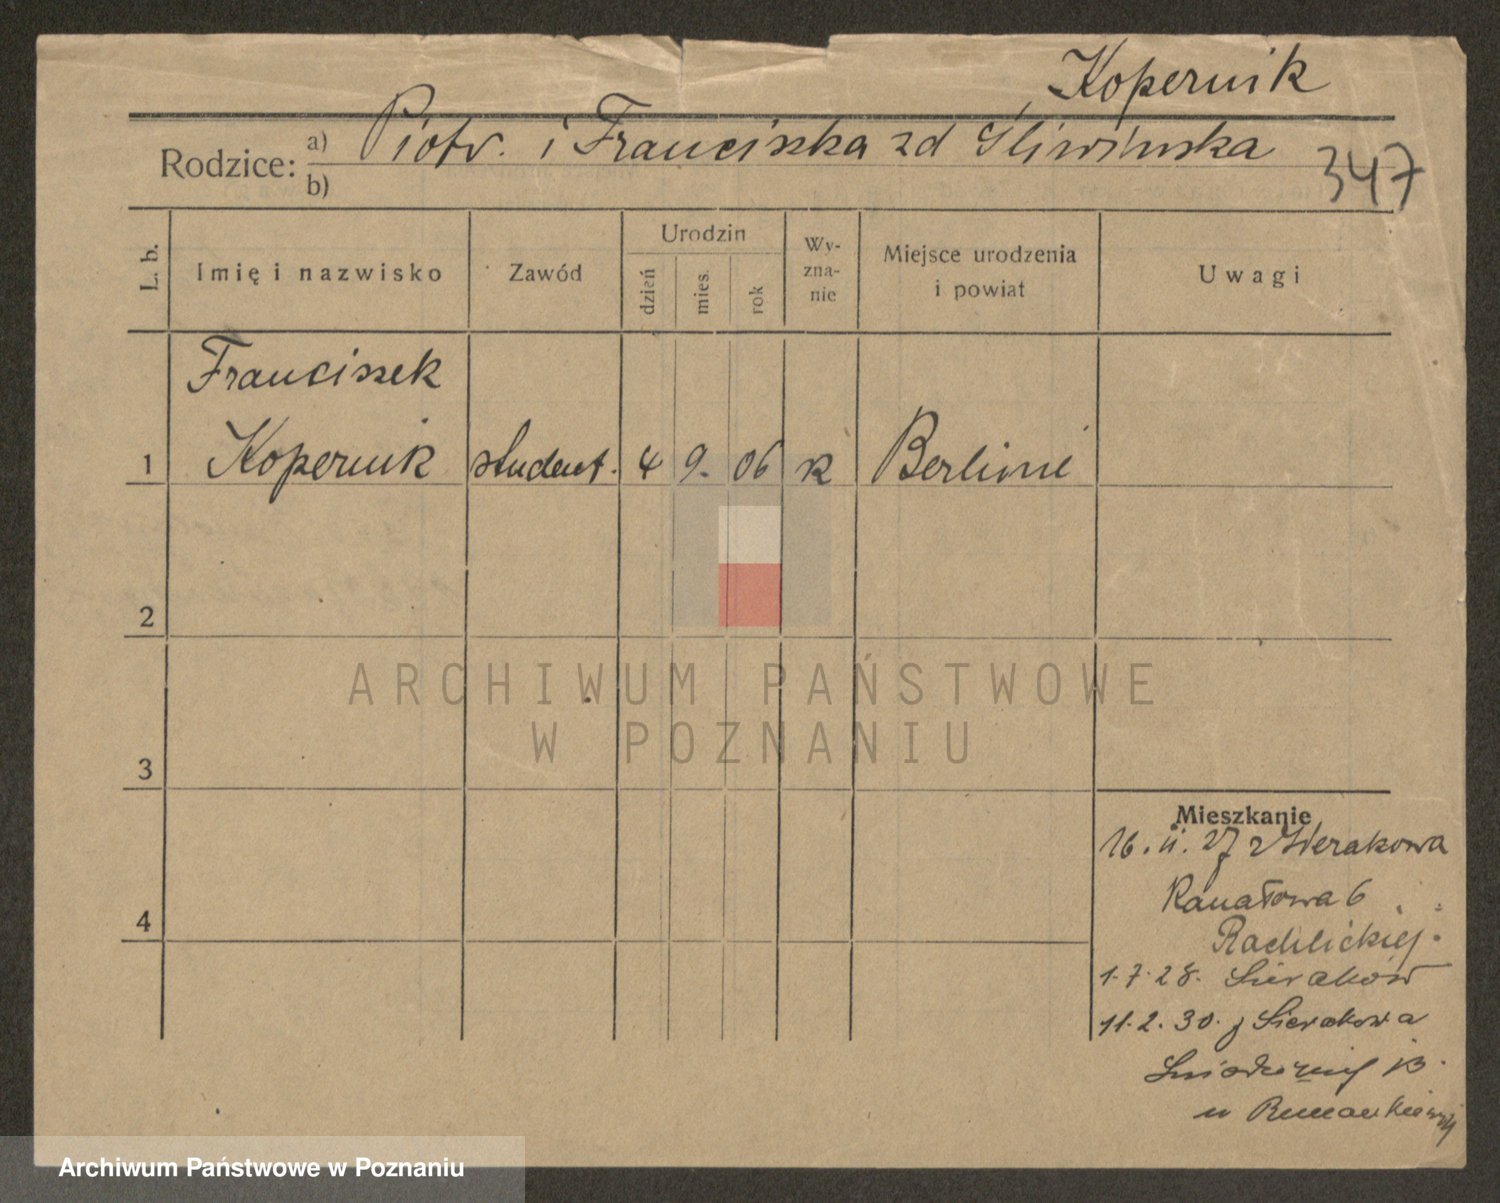 Kopernik
Rodzice: a) Piotr. i Franciszka zd Śliwińska
b)
347
L. b.
Imię i nazwisko
Zawód
Urodzin
dzień
mies.
rok
Wy-
zna-
nie
Miejsce urodzenia
i powiat
Uwagi
Franciszek
1 Kopernik student. 4 9. 06 k Berlinie
2
ARCHIWUM PAŃSTWOWE
W POZNANIU
3
Mieszkanie
16. 11. 27 z Sierakowa
4
Kanałowa 6
Rachlickiej.
1.7.28. Sieraków
11.2.30. z Sierakowa
13.
u
Archiwum Państwowe w Poznaniu